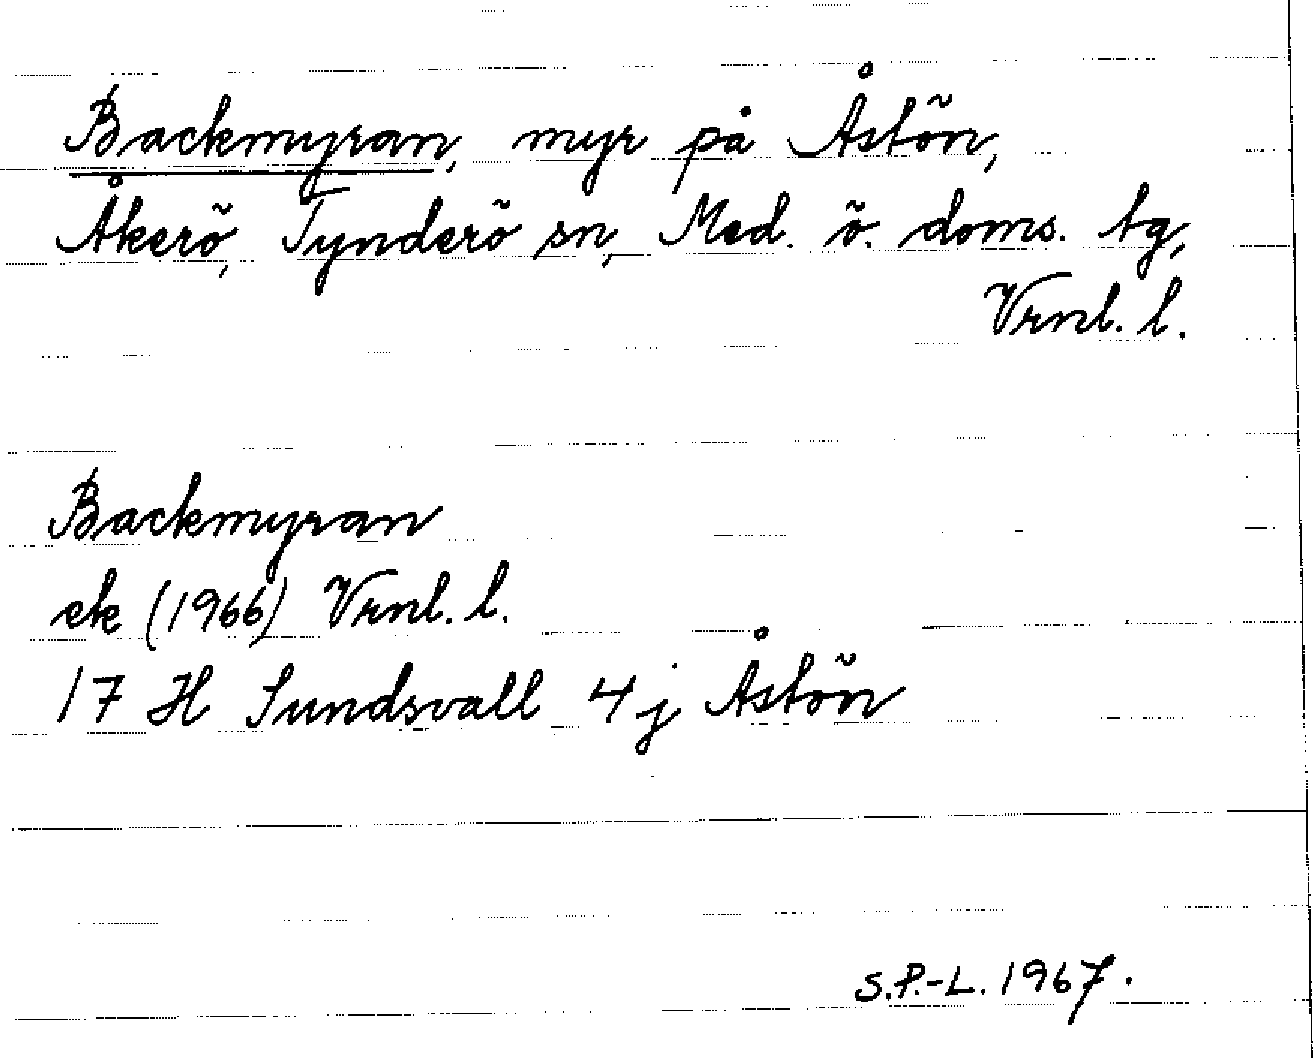 Backmyran, myr på Åstön,
Åkerö, Tynderö sn, Med. ö. doms. tg,
Vrnl. l.
Backmyran
ek (1966) Vrnl. l.
17 H Sundsvall 4 j Åstön
S.P.-L. 1967.